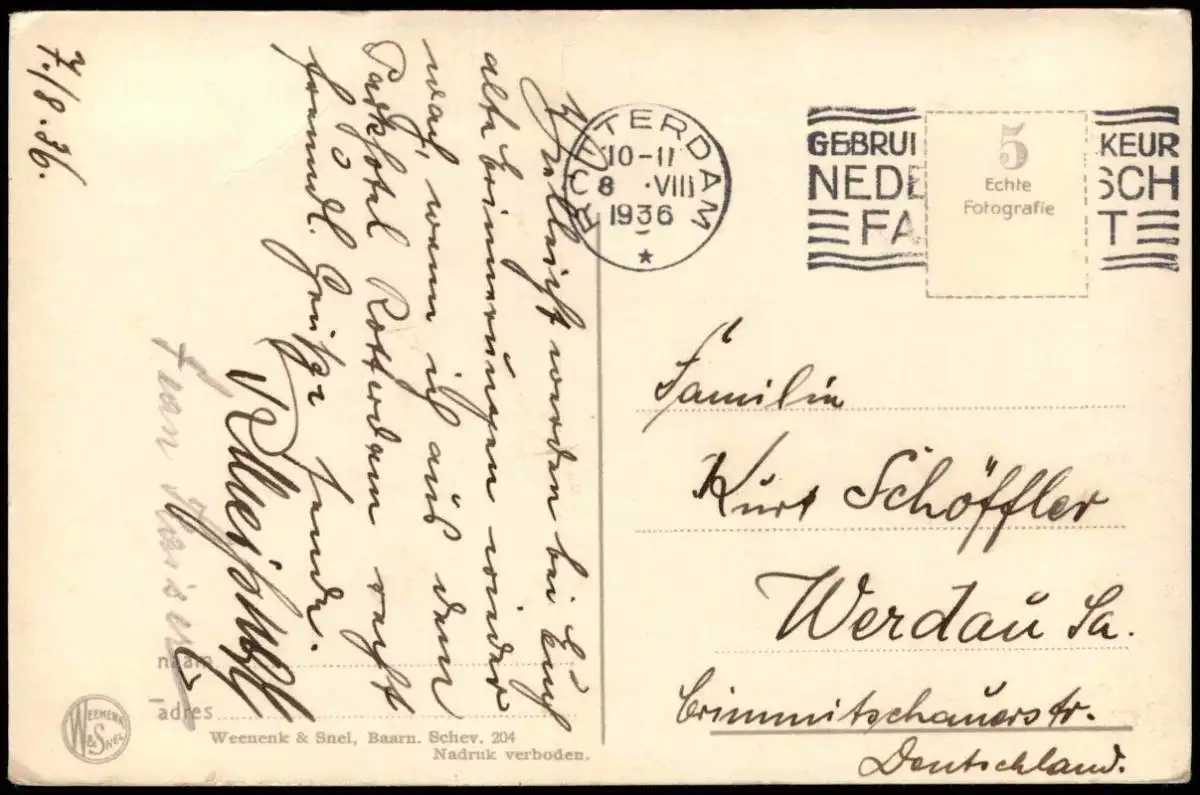 7./8.36.
Vielleicht werden bei Euch
alte Erinnerungen wieder
wach, wenn ich aus dem
Parkhotel Rotterdam recht
freundl. Grüße sende.
naam
adres
Weenenk & Snel, Baarn. Schev. 204
Nadruk verboden.
WEENENK & SNEL
ROTTERDAM
10-11
8 ·VIII
1936
GEBRUI KEUR
NEDE SCH
FA T
5
Echte
Fotografie
Familie
Kurt Schöffler
Werdau Sa.
Crimmitschauerstr.
Deutschland.